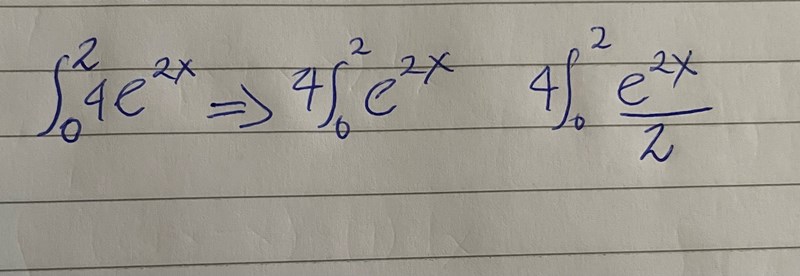 ∫₀² 4e²ˣ ⇒ 4∫₀² e²ˣ 4∫₀² e²ˣ/2